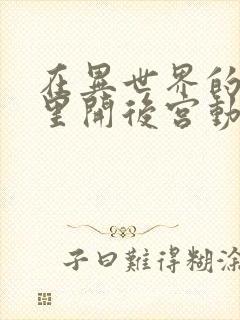 在異世界的
里開後宮動
子曰難得糊涂